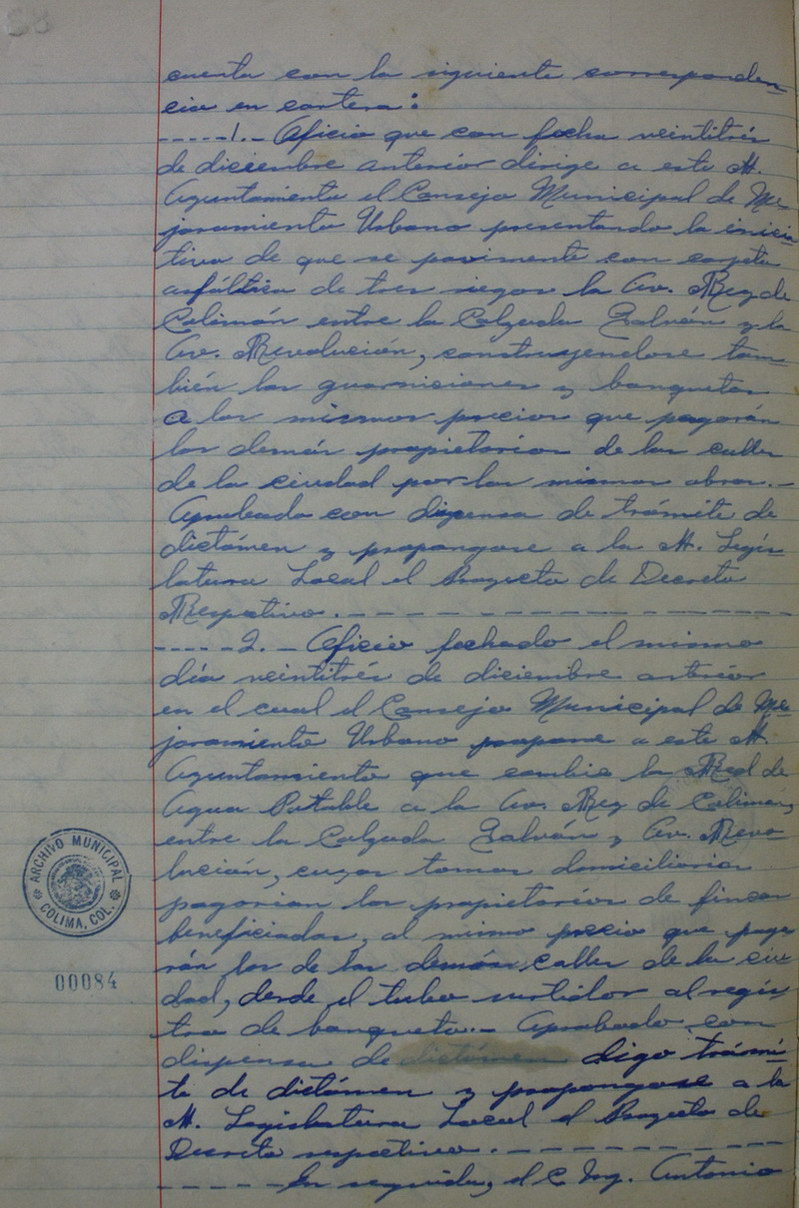 cuenta con la siguiente corresponden-
cia en cartera:
-----1.- Oficio que con fecha veintitrés
de diciembre anterior dirige a este H.
Ayuntamiento el Consejo Municipal de Me-
joramiento Urbano presentando la inicia-
tiva de que se pavimente con carpeta
asfáltica de tres riegos la Av. Rey de
Colimán entre la Calzada Galván y la
Av. Revolución, construyendose tam-
bién las guarniciones y banquetas
a los mismos precios que pagarán
los demás propietarios de las calles
de la ciudad por las mismas obras.-
Aprobado con dispensa de trámite de
dictámen y propongase a la H. Legis-
latura Local el Proyecto de Decreto
Respectivo.---------------
-----2.- Oficio fechado el mismo
día veintitrés de diciembre anterior
en el cual el Consejo Municipal de Me-
joramiento Urbano propone a este H.
Ayuntamiento que cambie la Red de
Agua Potable a la Av. Rey de Colimán,
entre la Calzada Galván y Av. Revo-
lución, cuyas tomas domiciliarias
pagarían los propietarios de fincas
beneficiadas, al mismo precio que paga-
rán los de las demás calles de la ciu-
dad, desde el tubo surtidor al regis-
tro de banqueta.- Aprobado con
dispensa de dictámen digo trámi-
te de dictámen y propongase a la
H. Legislatura Local el Proyecto de
Decreto respectivo.----------
-----En seguida, el C. Ing. Antonio
ARCHIVO MUNICIPAL
COLIMA, COL.
00084